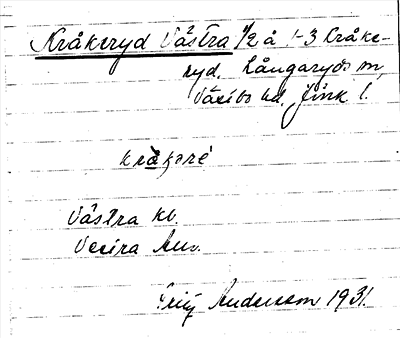 Kråkeryd Västra 1/2 å 1-3 Kråke-
ryd. Långaryds sn,
Västbo hd. Jönk l.
kråkərè
Västra kv.
Andersson 1931.